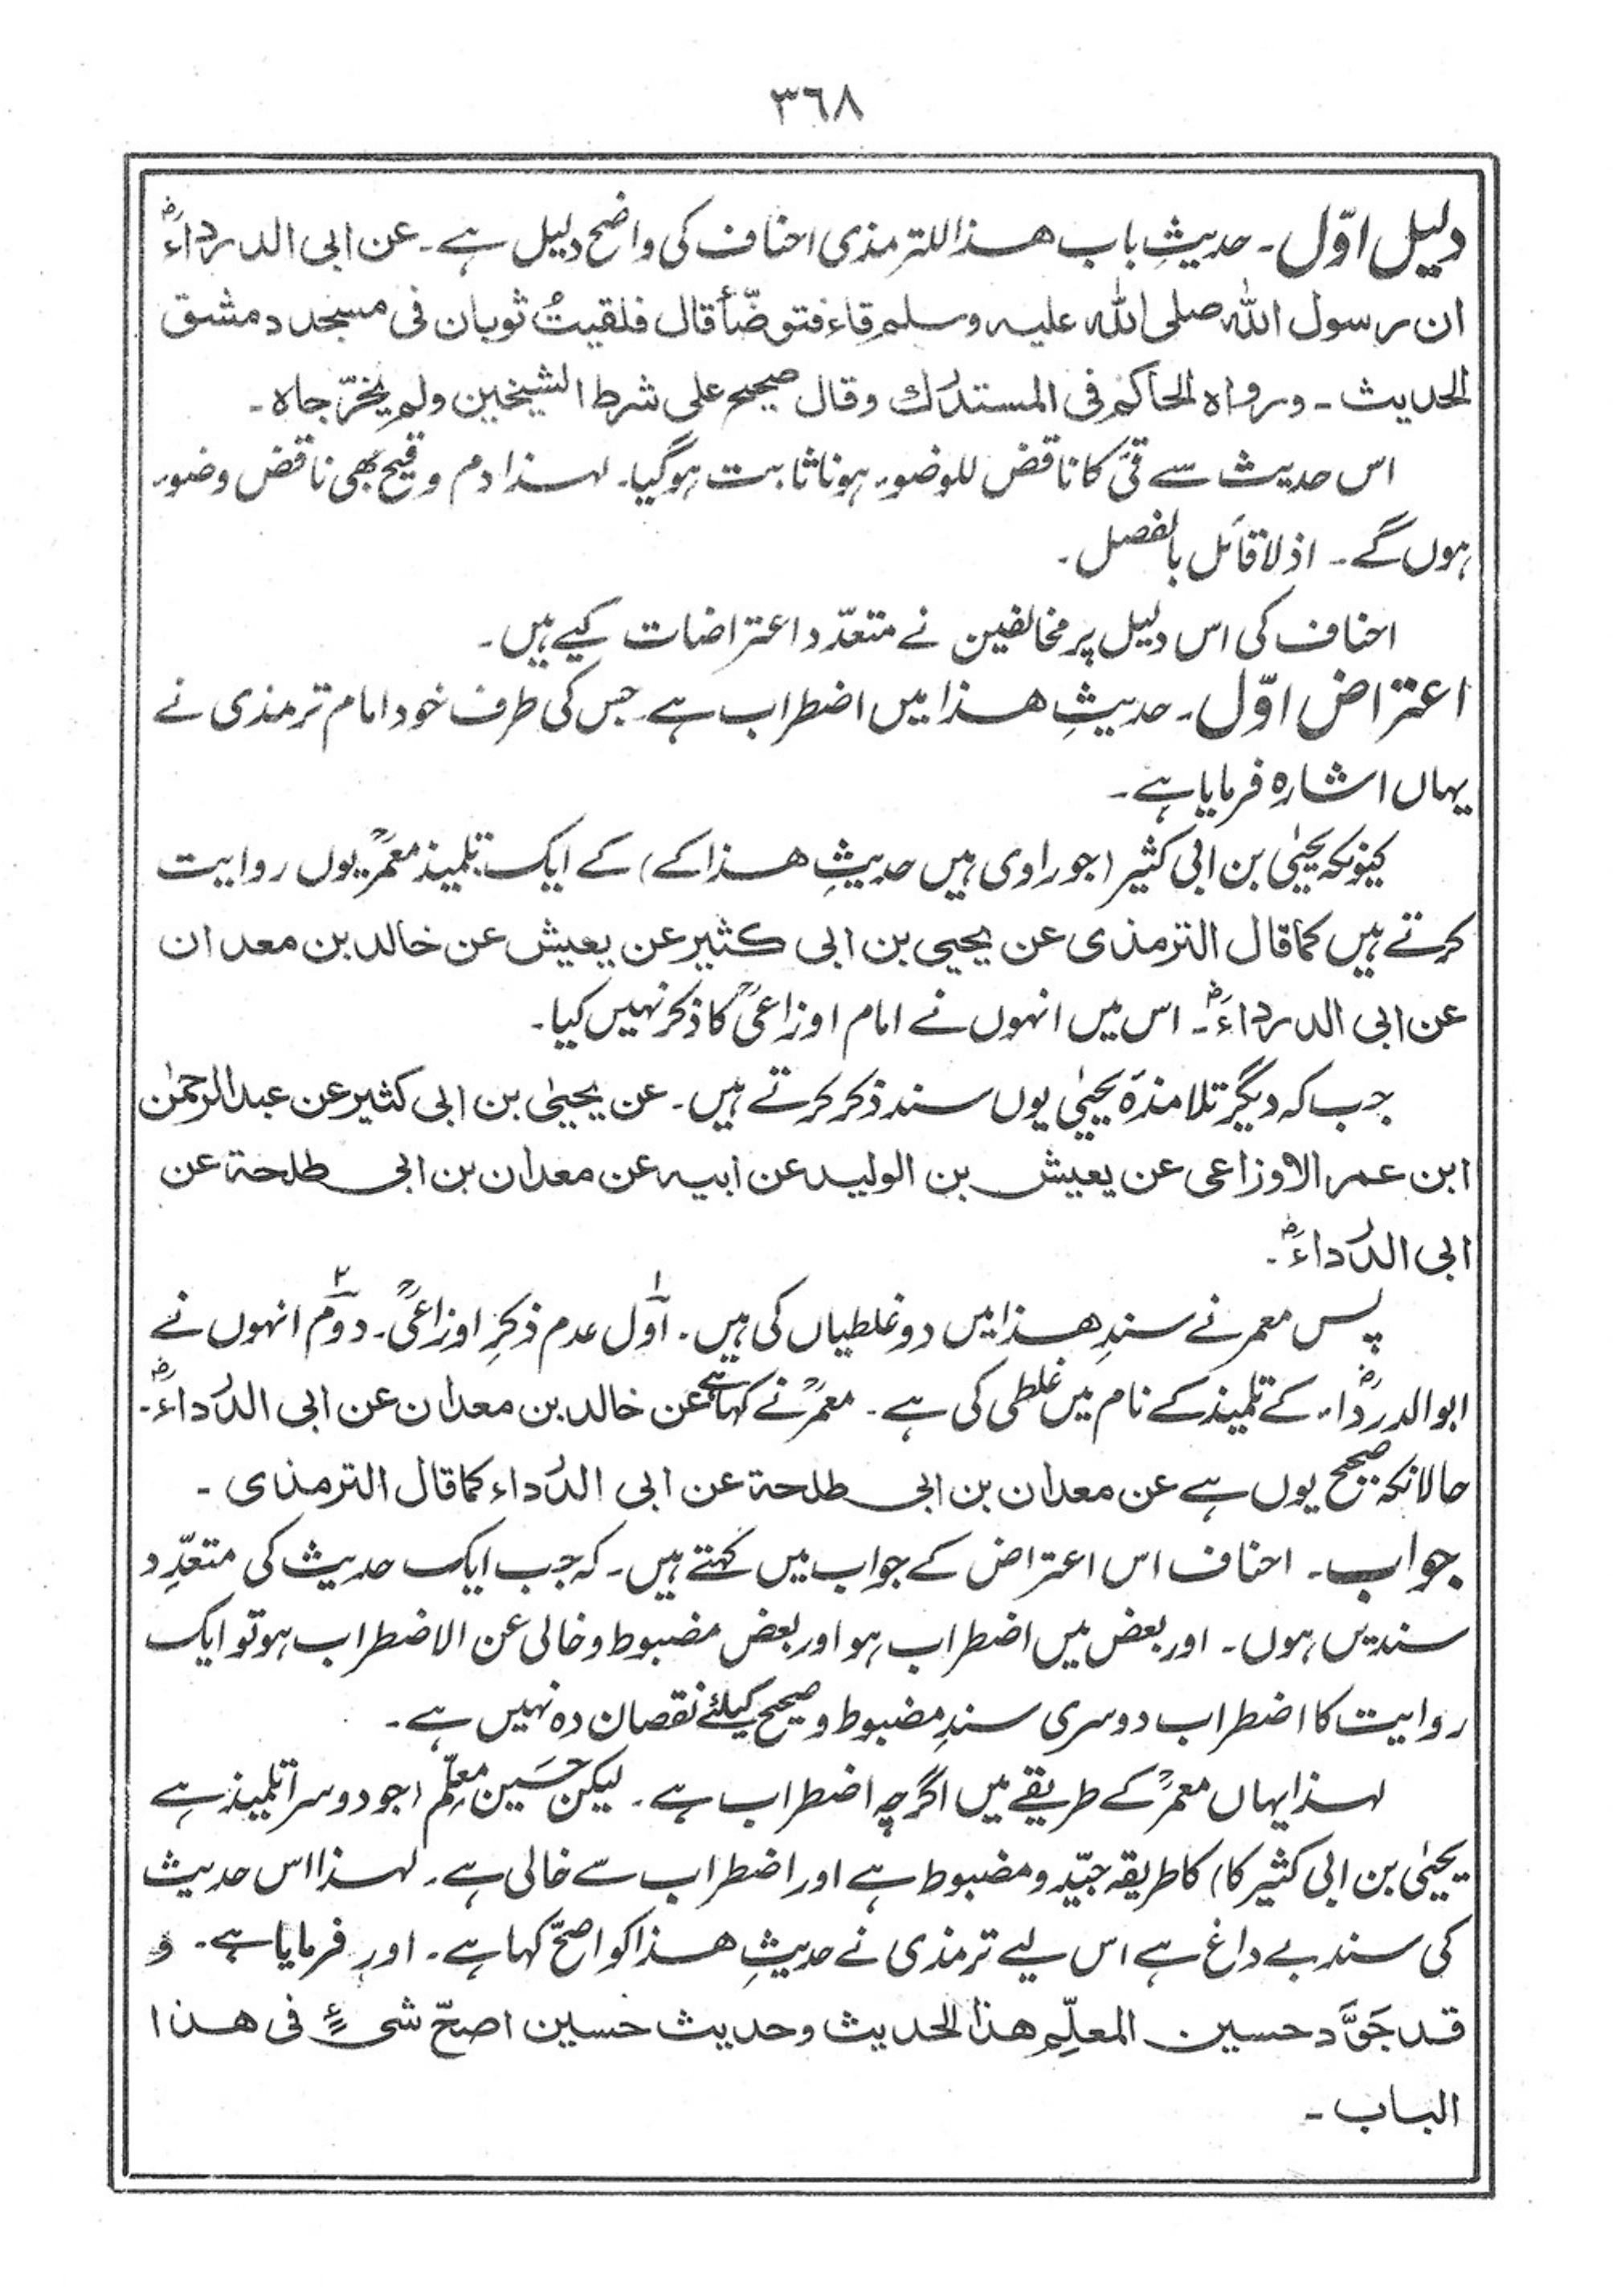 ۳٦۸
دلیل اوّل۔ حدیثِ باب ھذا للترمذی احناف کی واضح دلیل ہے۔ عن ابی الدرداءؓ
ان رسول اللہ صلی اللہ علیہ وسلم قاء فتوضّأ قال فلقیتُ ثوبان فی مسجد دمشق
الحدیث۔ ورواہ الحاکم فی المستدرك وقال صحیح علی شرط الشیخین ولم یخرّجاہ۔
اس حدیث سے قئ کا ناقض للوضوء ہونا ثابت ہوگیا۔ لہٰذا دم و قیح بھی ناقض وضوء
ہوں گے۔ اذ لا قائل بالفصل۔
احناف کی اس دلیل پر مخالفین نے متعدّد اعتراضات کیے ہیں۔
اعتراض اوّل۔ حدیثِ ھذا میں اضطراب ہے۔ جس کی طرف خود امام ترمذی نے
یہاں اشارہ فرمایا ہے۔
کیونکہ یحییٰ بن ابی کثیر (جو راوی ہیں حدیثِ ھذا کے) کے ایک تلمیذ معمرؒ یوں روایت
کرتے ہیں کما قال الترمذی عن یحیی بن ابی کثیر عن یعیش عن خالد بن معدان
عن ابی الدرداءؓ۔ اس میں انہوں نے امام اوزاعیؒ کا ذکر نہیں کیا۔
جب کہ دیگر تلامذۂ یحییٰ یوں سند ذکر کرتے ہیں۔ عن یحییٰ بن ابی کثیر عن عبد الرحمٰن
ابن عمر الاوزاعی عن یعیش بن الولید عن ابیہ عن معدان بن ابی طلحۃ عن
ابی الدرداءؓ۔
پس معمر نے سندِ ھذا میں دو غلطیاں کی ہیں۔ ۱ اوّل عدم ذکرِ اوزاعیؒ۔ ۲ دوّم انہوں نے
ابوالدرداءؓ کے تلمیذ کے نام میں غلطی کی ہے۔ معمرؒ نے کہا ہے عن خالد بن معدان عن ابی الدرداءؓ۔
حالانکہ صحیح یوں ہے عن معدان بن ابی طلحۃ عن ابی الدرداء کما قال الترمذی۔
جواب۔ احناف اس اعتراض کے جواب میں کہتے ہیں۔ کہ جب ایک حدیث کی متعدّد
سندیں ہوں۔ اور بعض میں اضطراب ہو اور بعض مضبوط و خالی عن الاضطراب ہو تو ایک
روایت کا اضطراب دوسری سندِ مضبوط و صحیح کیلئے نقصان دہ نہیں ہے۔
لہٰذا یہاں معمرؒ کے طریقے میں اگرچہ اضطراب ہے۔ لیکن حسَین معلّم (جو دوسرا تلمیذ ہے
یحییٰ بن ابی کثیر کا) کا طریقہ جیّد و مضبوط ہے اور اضطراب سے خالی ہے۔ لہٰذا اس حدیث
کی سند بے داغ ہے اس لیے ترمذی نے حدیثِ ھذا کو اصحّ کہا ہے۔ اور فرمایا ہے۔ و
قد جَوَّد حسین المعلّم ھذا الحدیث وحدیث حسین اصحّ شیءٍ فی ھذا
الباب۔